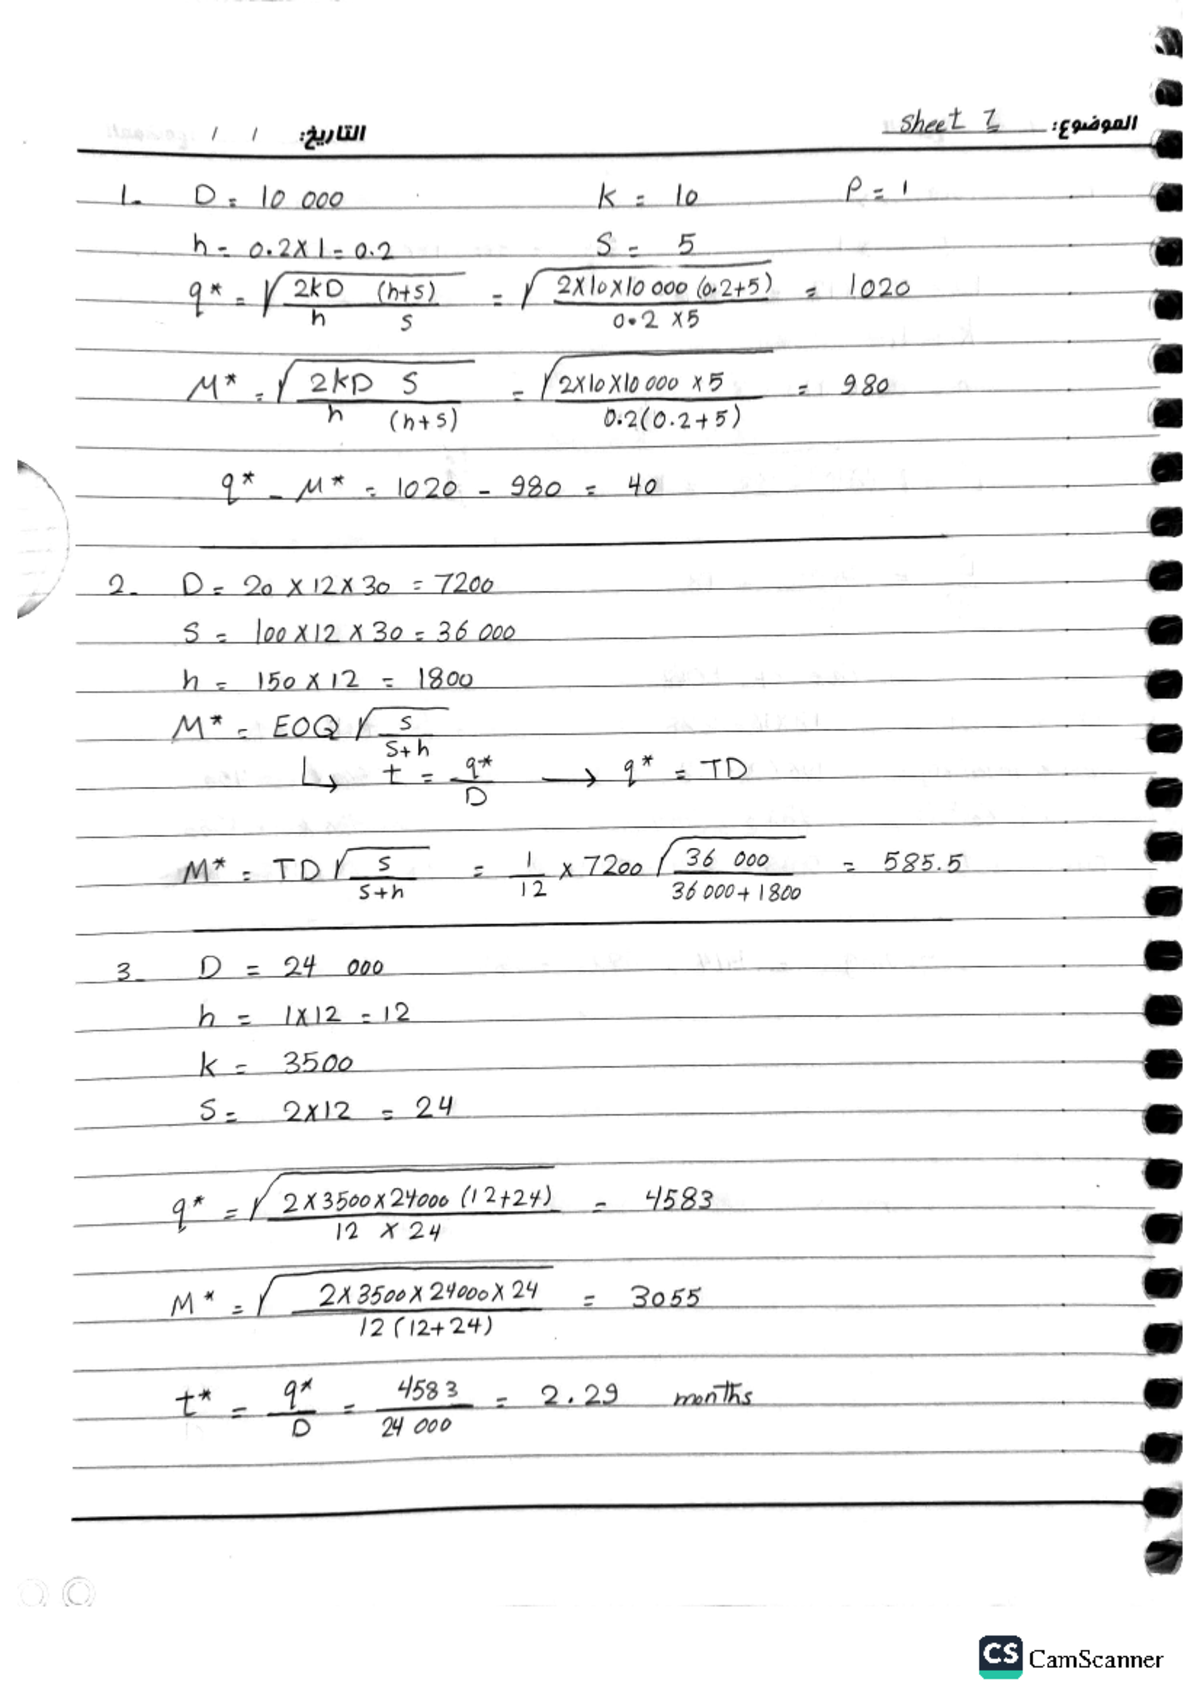 الموضوع: Sheet 7 التاريخ: / /
1- D = 10 000 K = 10 P = 1
h = 0.2 X 1 = 0.2 S = 5
q* = √(2KD (h+s) / h s) = √(2X10X10 000 (0.2+5) / 0.2 X5) = 1020
M* = √(2KD S / h (h+s)) = √(2X10X10 000 X5 / 0.2(0.2+5)) = 980
q* - M* = 1020 - 980 = 40
2- D = 20 X12X30 = 7200
S = 100X12 X 30 = 36 000
h = 150 X 12 = 1800
M* = EOQ √(s / s+h)
↳ t = q* / D → q* = TD
M* = TD √(s / s+h) = 1/12 x 7200 √(36 000 / 36 000+1800) = 585.5
3- D = 24 000
h = 1X12 = 12
k = 3500
S = 2X12 = 24
q* = √(2X3500X24000 (12+24) / 12 X 24) = 4583
M* = √(2X3500X24000X24 / 12(12+24)) = 3055
t* = q* / D = 4583 / 24 000 = 2.29 months
CS CamScanner